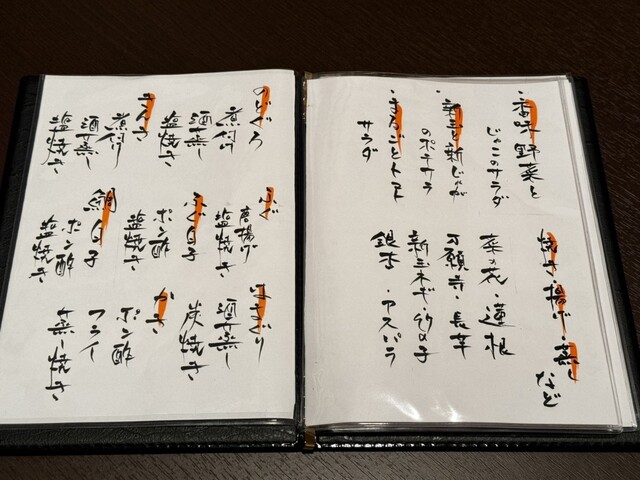 ・香味野菜と
じゃこのサラダ
・新玉と新じゃが
のポテサラ
・まるごとトマト
サラダ
焼き・揚げ・蒸し
など
菜の花・蓮根
万願寺・長芋
新玉ネギ・竹の子
銀杏・アスパラ
のどぐろ
煮付
酒蒸し
塩焼き
きんき
煮付
酒蒸し
塩焼き
ふぐ
唐揚げ
塩焼き
ふぐ白子
ポン酢
塩焼き
鯛白子
ポン酢
塩焼き
はまぐり
酒蒸し
炭焼き
かき
ポン酢
フライ
蒸し焼き